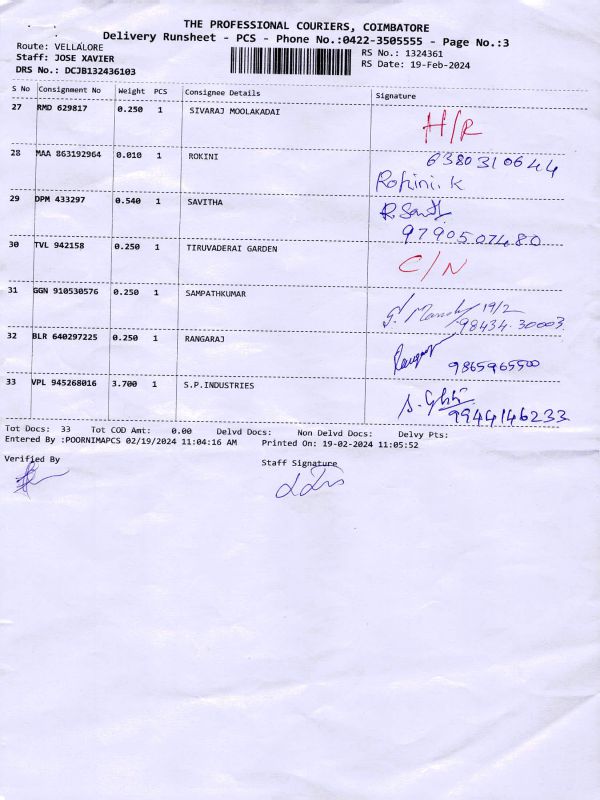 THE PROFESSIONAL COURIERS, COIMBATORE
Delivery Runsheet - PCS - Phone No.:0422-3505555 - Page No.:3
Route: VELLALORE
RS No.: 1324361
Staff: JOSE XAVIER
RS Date: 19-Feb-2024
DRS No.: DCJB132436103
S No Consignment No Weight PCS Consignee Details Signature
27 RMD 629817 0.250 1 SIVARAJ MOOLAKADAI
H/R
28 MAA 863192964 0.010 1 ROKINI
6380310644
Rohini. K
29 DPM 433297 0.540 1 SAVITHA
9790507480
30 TVL 942158 0.250 1 TIRUVADERAI GARDEN
C/N
31 GGN 910530576 0.250 1 SAMPATHKUMAR
19/2
98434.30003.
32 BLR 640297225 0.250 1 RANGARAJ
9865965500
33 VPL 945268016 3.700 1 S.P.INDUSTRIES
9944146233
Tot Docs: 33 Tot COD Amt: 0.00 Delvd Docs: Non Delvd Docs: Delvy Pts:
Entered By :POORNIMAPCS 02/19/2024 11:04:16 AM Printed On: 19-02-2024 11:05:52
Verified By
Staff Signature